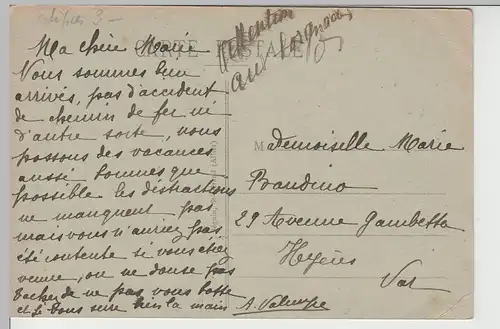 édifices 3 -
CARTE POSTALE
Attention
aux
Ma chère Marie
Vous sommes bien
arrivés, pas d'accident
de chemin de fer ni
d'autre sorte, nous
passons des vacances
aussi bonnes que
possible les distractions
ne manquent pas
mais vous n'auriez pas
été contente si vous étiez
venue, on ne danse pas
tachez de ne pas vous
et je vous serre bien la main
Mademoiselle Marie
Baudino
29 Avenue Gambetta
Hyères
Var